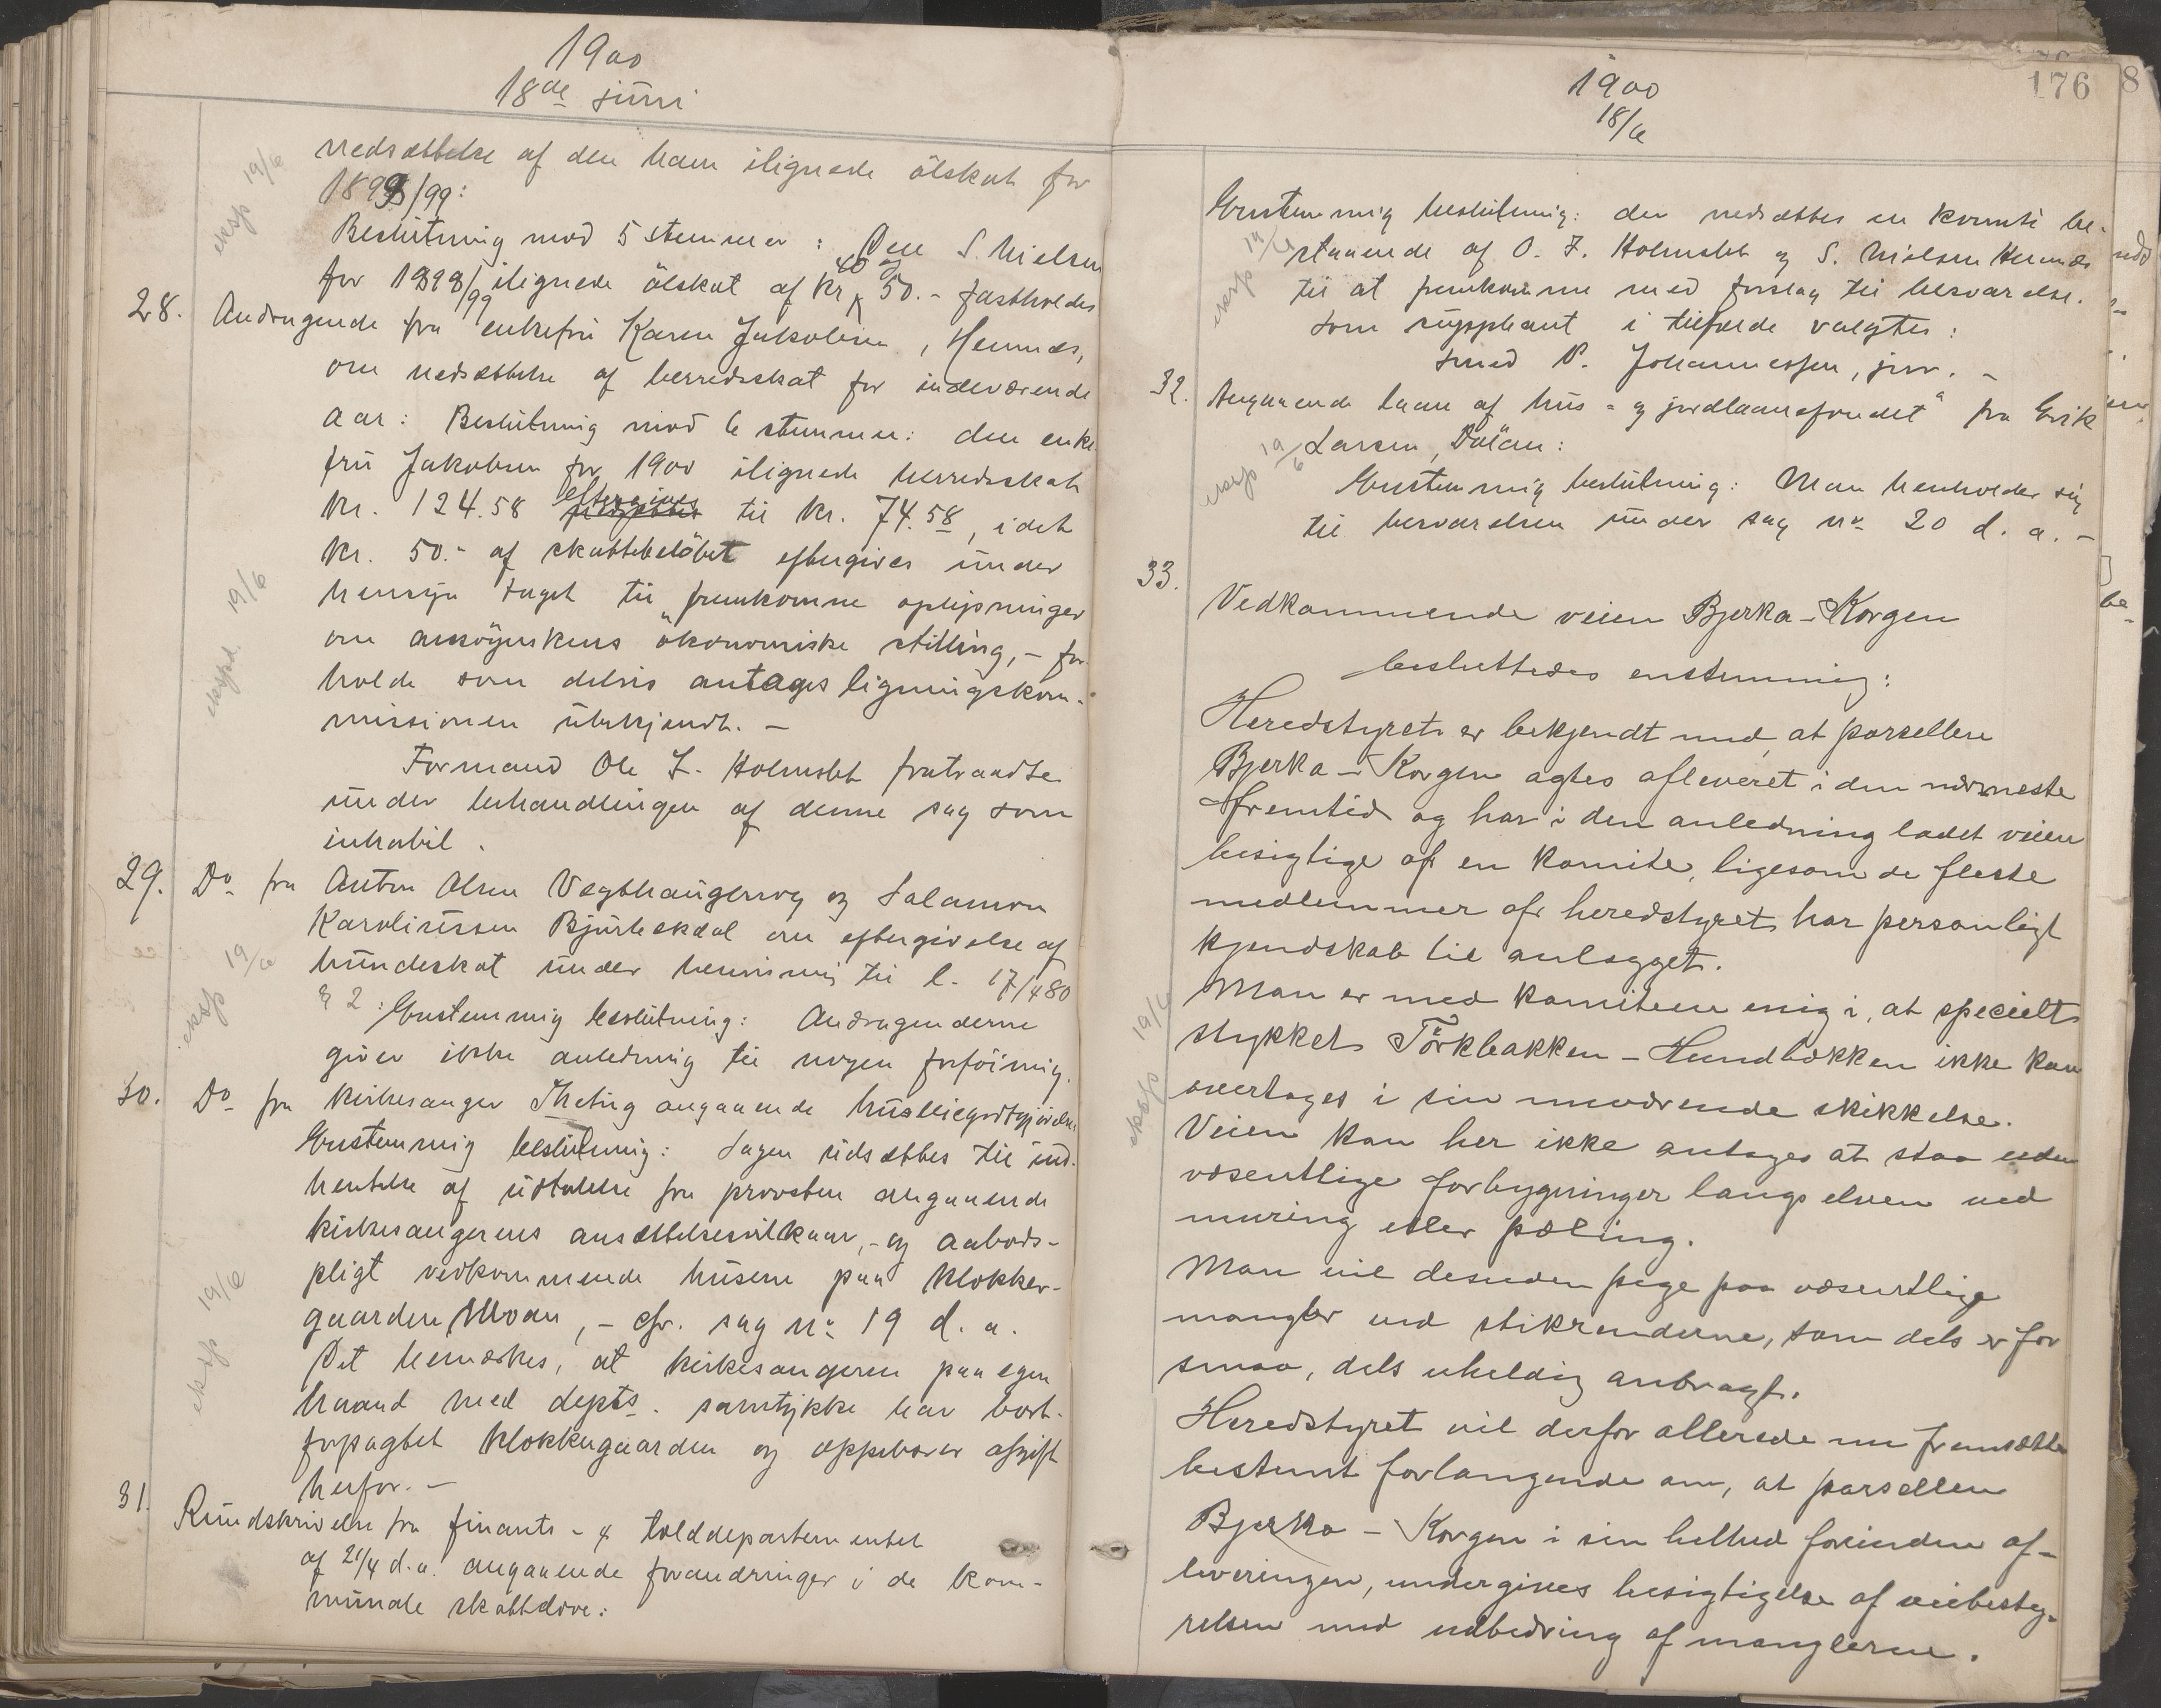 1900
18de juni
nedsættelse af den ham ilignede ölskat for
1898/99:
Beslutning mod 5 stemmer: Den S. Nielsen
for 1898/99 ilignede ölskat af kr 40 og 50.- fastholdes
28. Andragende fra enkefru Karen Jakobsen, Hemnes,
om nedsættelse af herredsskat for indeværende
aar: Beslutning mod 6 stemmer: den enke-
fru Jakobsen for 1900 ilignede herredsskat
kr. 124.58 eftergives til kr. 74.58, idet
kr. 50.- af skattebelöbet eftergives under
hensyn taget til fremkomne oplysninger
om ansögerskens ökonomiske stilling, - for-
holde som delvis antages ligningskom-
missionen ubekjendt. -
Formand Ole Z. Holmslet fratraadte
under behandlingen af denne sag som
inhabil.
29. Do fra Anton Olsen og Salamon
Karoliussen Bjurbekdal om eftergivelse af
hundeskat under henvisning til l. 17/4 80
§ 2: Enstemmig beslutning: Andragenderne
giver ikke anledning til nogen forföining.
30. Do fra kirkesanger Theting angaaende husleiegodtgjörelse
Enstemmig beslutning: Sagen udsættes til ind-
hentelse af udtalelse fra provsten angaaende
kirkesangerens ansættelsesvilkaar, - og aabods-
pligt vedkommende husene paa klokker-
gaarden Moan, - cfr. sag no 19 d. a.
Det bemærkes, at kirkesangeren paa egen
haand med depts. samtykke har bort-
forpagtet klokkergaarden og oppebærer afgift
herfor. -
31. Rundskrivelse fra finants- & tolddepartementet
af 21/4 d.a. angaaende forandringer i de kom-
munale skattelove:
eksp 19/6
ekspd. 19/6
eksp 19/6
eksp 19/6
1900
18/6
176
Enstemmig beslutning: der nedsættes en komité be-
staaende af O. Z. Holmslet og S. Nielsen Hemnes
til at fremkomme med forslag til besvarelse.
Som suppleant i tilfælde valgtes:
smed P. Johannessen, jun. -
32. Angaaende laan af hus- og jordlaansfondet fra Erik
Larsen, Dalan:
Enstemmig beslutning: Man henholder sig
til besvarelsen under sag no 20 d. a. -
33.
Vedkommende veien Bjerka - Korgen
besluttedes enstemmig:
Heredstyret er bekjendt med, at parsellen
Bjerka - Korgen agtes afleveret i den nærmeste
fremtid og har i den anledning ladet veien
besigtige af en komite, ligesom de fleste
medlemmer af heredstyret har personligt
kjendskab til anlægget.
Man er med komiteen enig i, at specielt
stykket Törkbakken - Hundbækken ikke kan
overtages i sin nuværende skikkelse.
Veien kan her ikke antages at staa uden
væsentlige forbygninger langs elven ved
muring eller pæling.
Man vil desuden pege paa væsentlige
mangler ved stikrenderne, som dels er for
smaa, dels uheldig anbragt.
Heredstyret vil derfor allerede nu fremsætte
bestemt forlangende om, at parsellen
Bjerka - Korgen i sin helhed forinden af-
leveringen, undergives besigtigelse af veibesty-
relsen med udbedring af manglerne.
eksp 19/6
eksp 19/6
eksp 19/6
8